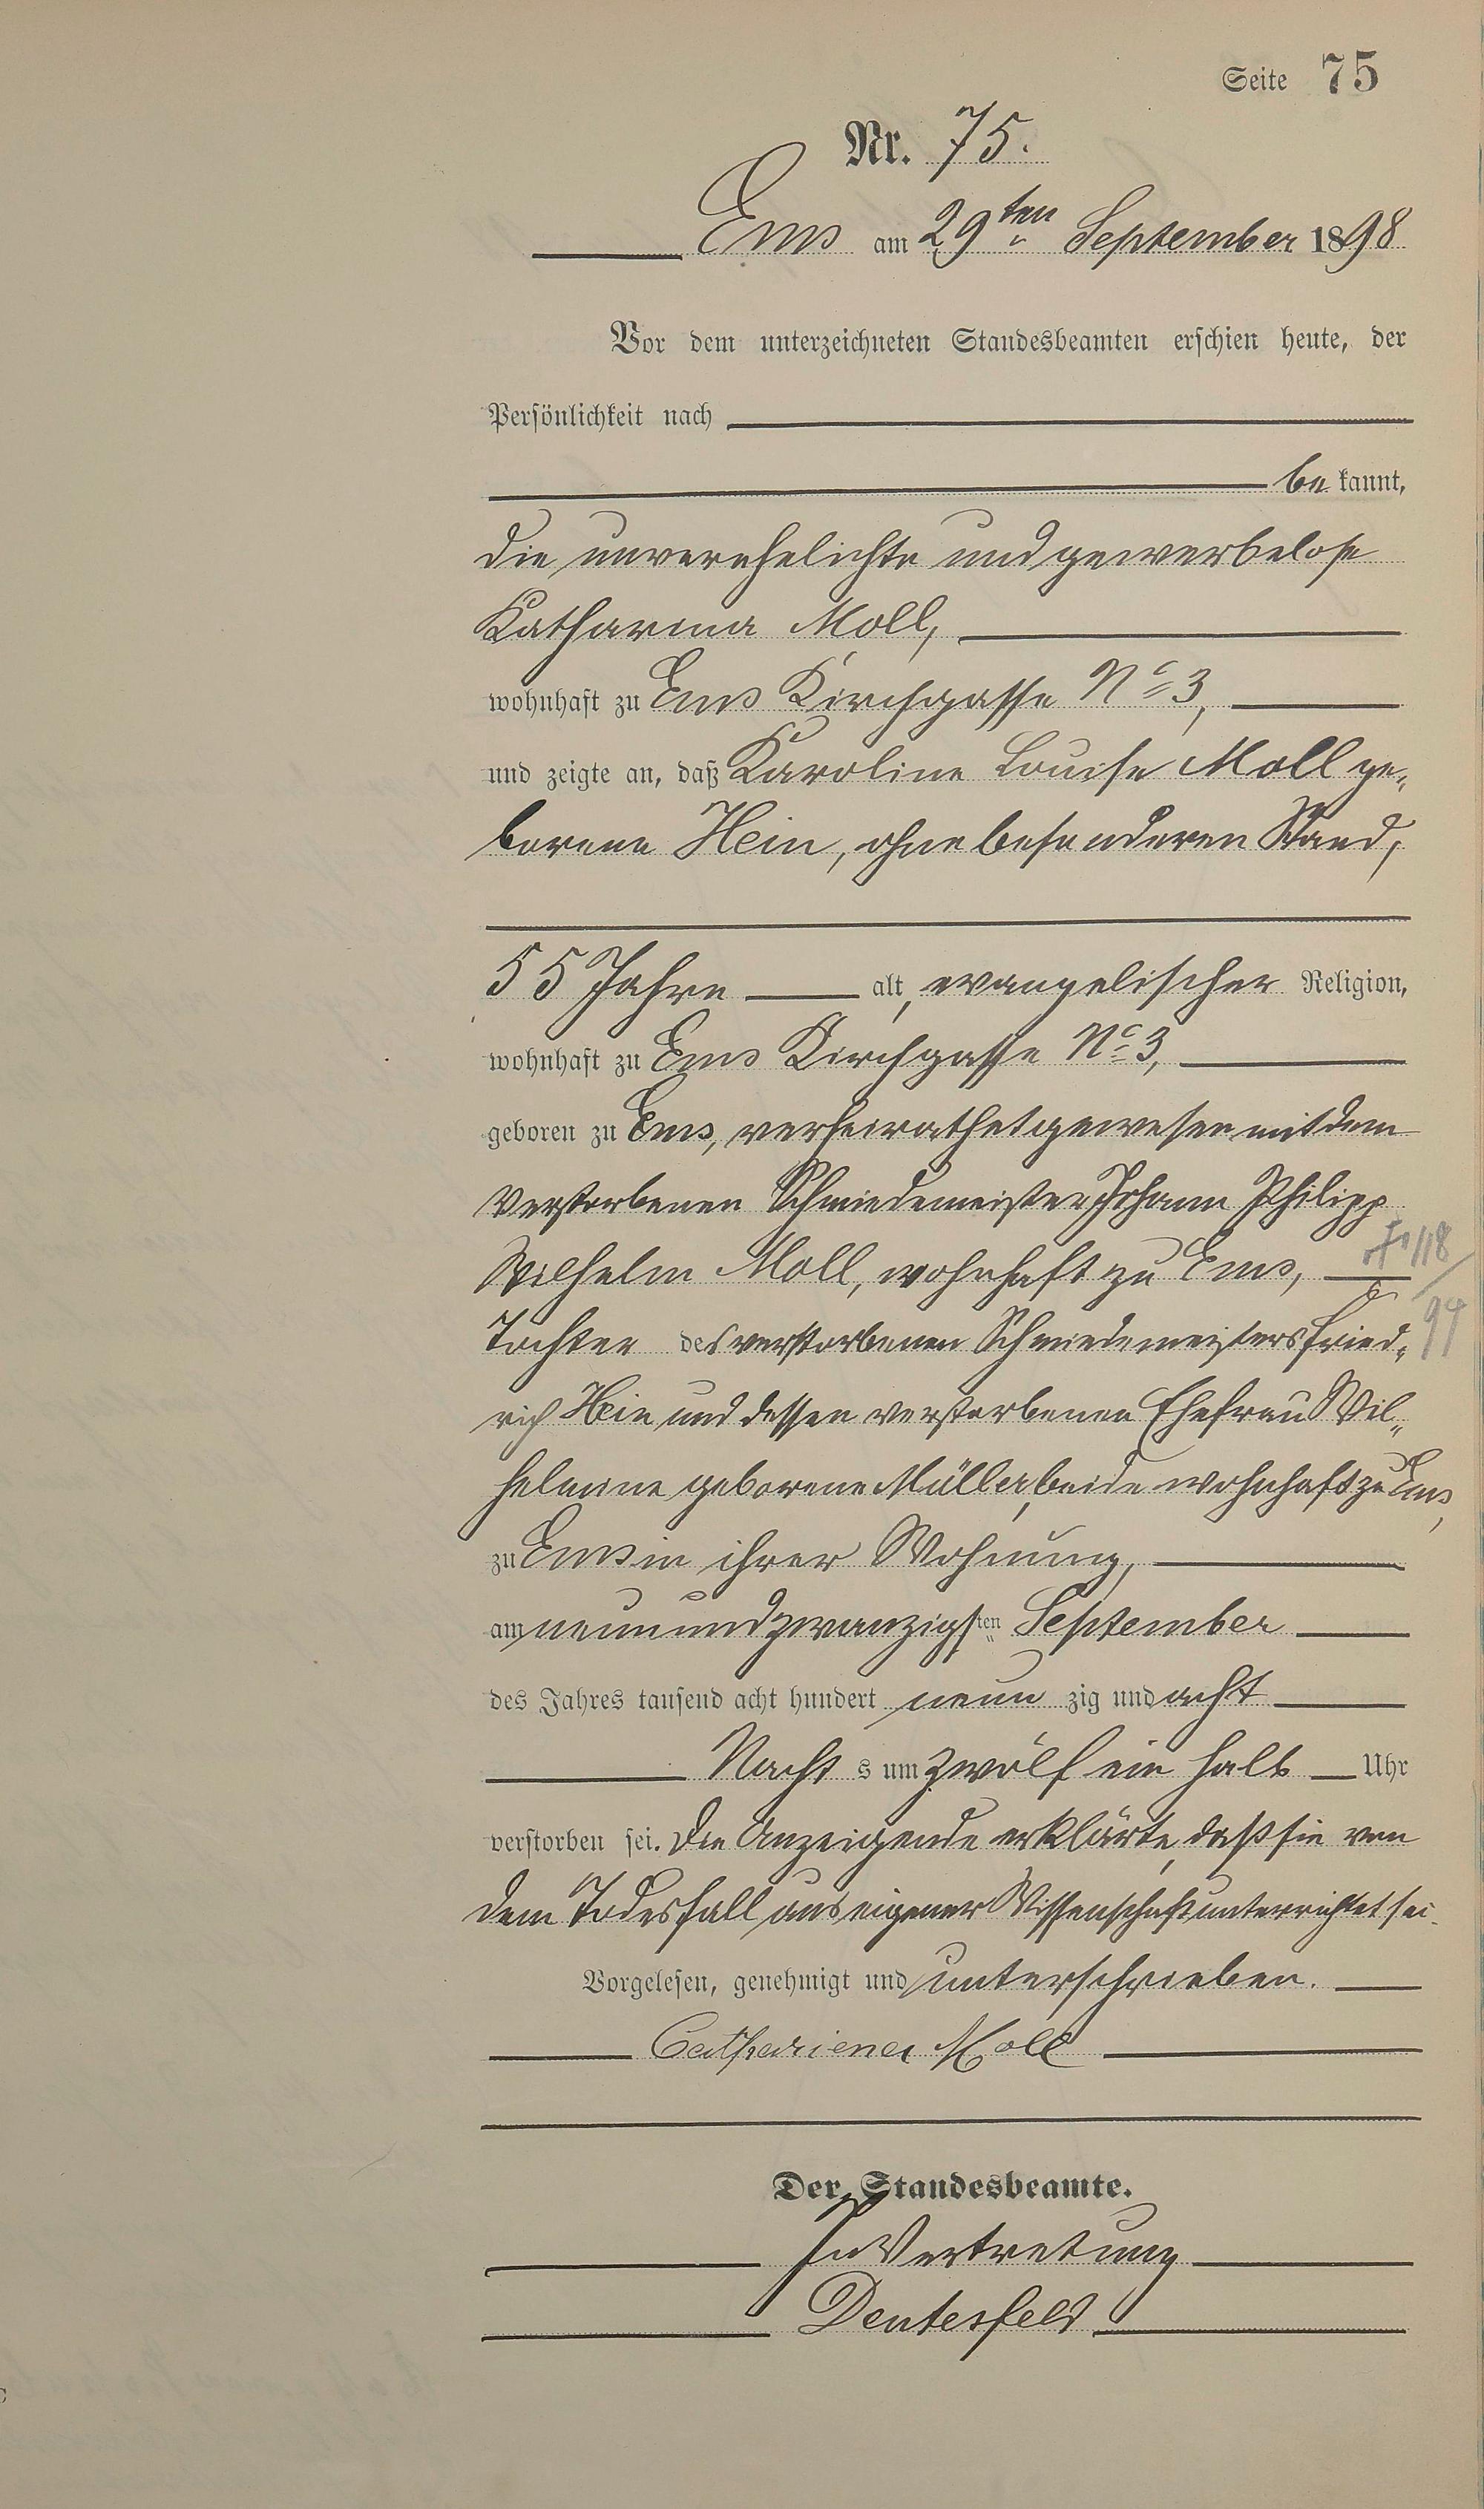 Seite 75
Nr. 75.
Ems am 29ten September 1898
Vor dem unterzeichneten Standesbeamten erschien heute, der
Persönlichkeit nach
be kannt,
die unverehelichte und gewerbelose
Katharina Moll,
wohnhaft zu Ems Kirchgasse No 3,
und zeigte an, daß Karoline Louise Moll ge-
borene Hein, ohne besonderen Stand,
55 Jahre alt, evangelischer Religion,
wohnhaft zu Ems Kirchgasse No 3,
geboren zu Ems, verheirathet gewesen mit dem
verstorbenen Schmiedemeister Johann Philipp
Wilhelm Moll, wohnhaft zu Ems,
118
94
Tochter des verstorbenen Schmiedemeisters Fried-
rich Hein und dessen verstorbenen Ehefrau Wil-
helmine geborene Müller, beide wohnhaft zu Ems,
zu Ems in ihrer Wohnung,
am neunundzwanzigsten September
des Jahres tausend acht hundert neun zig und acht
Nacht s um zwölf ein halb Uhr
verstorben sei. Die Anzeigende erklärte, daß sie von
dem Todesfall aus eigener Wissenschaft unterrichtet sei.
Vorgelesen, genehmigt und unterschrieben.
Cathariena Moll
Der Standesbeamte.
In Vertretung
Deutesfeld